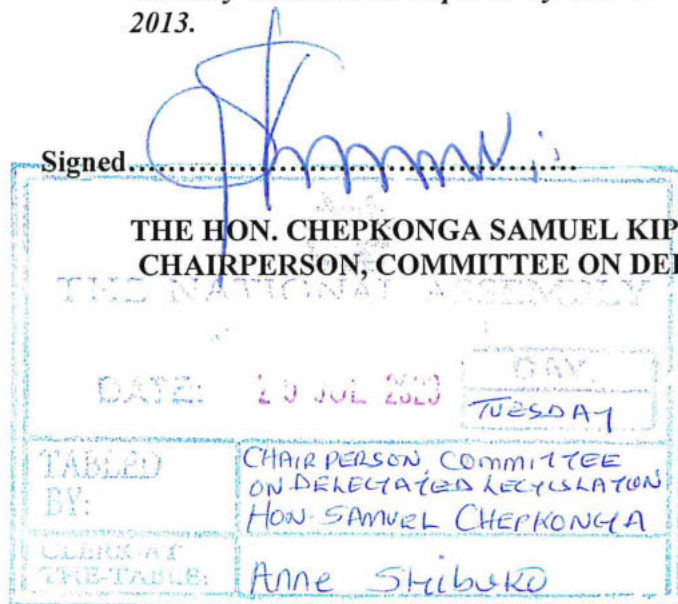 2013.
Signed
THE HON. CHEPKONGA SAMUEL KIP
CHAIRPERSON, COMMITTEE ON DEL
THE NATIONAL ASSEMBLY
DATE: JUL 2023
DAY.
TUESDAY
TABLED
BY:
CHAIRPERSON, COMMITTEE
ON DELEGATED LEGISLATION
HON. SAMUEL CHEPKONGA
CLERK-AT
THE-TABLE:
Anne Shibuko